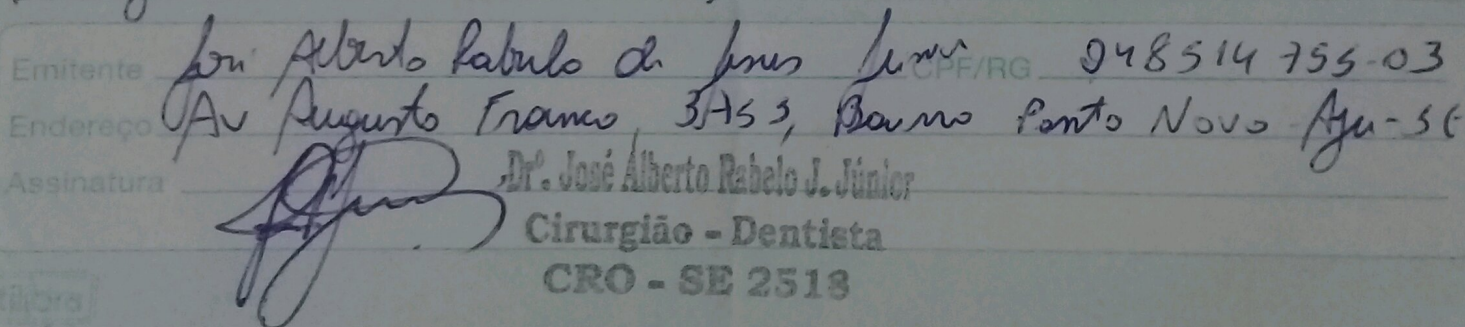 Emitente José Alberto Rabelo de Jesus Junior CPF/RG 948514755-03
Endereço Av Augusto Franco, 3453, Bairro Ponto Novo Aju-SE
Assinatura
Dr°. José Alberto Rabelo J. Júnior
Cirurgião - Dentista
CRO - SE 2518
tilibra